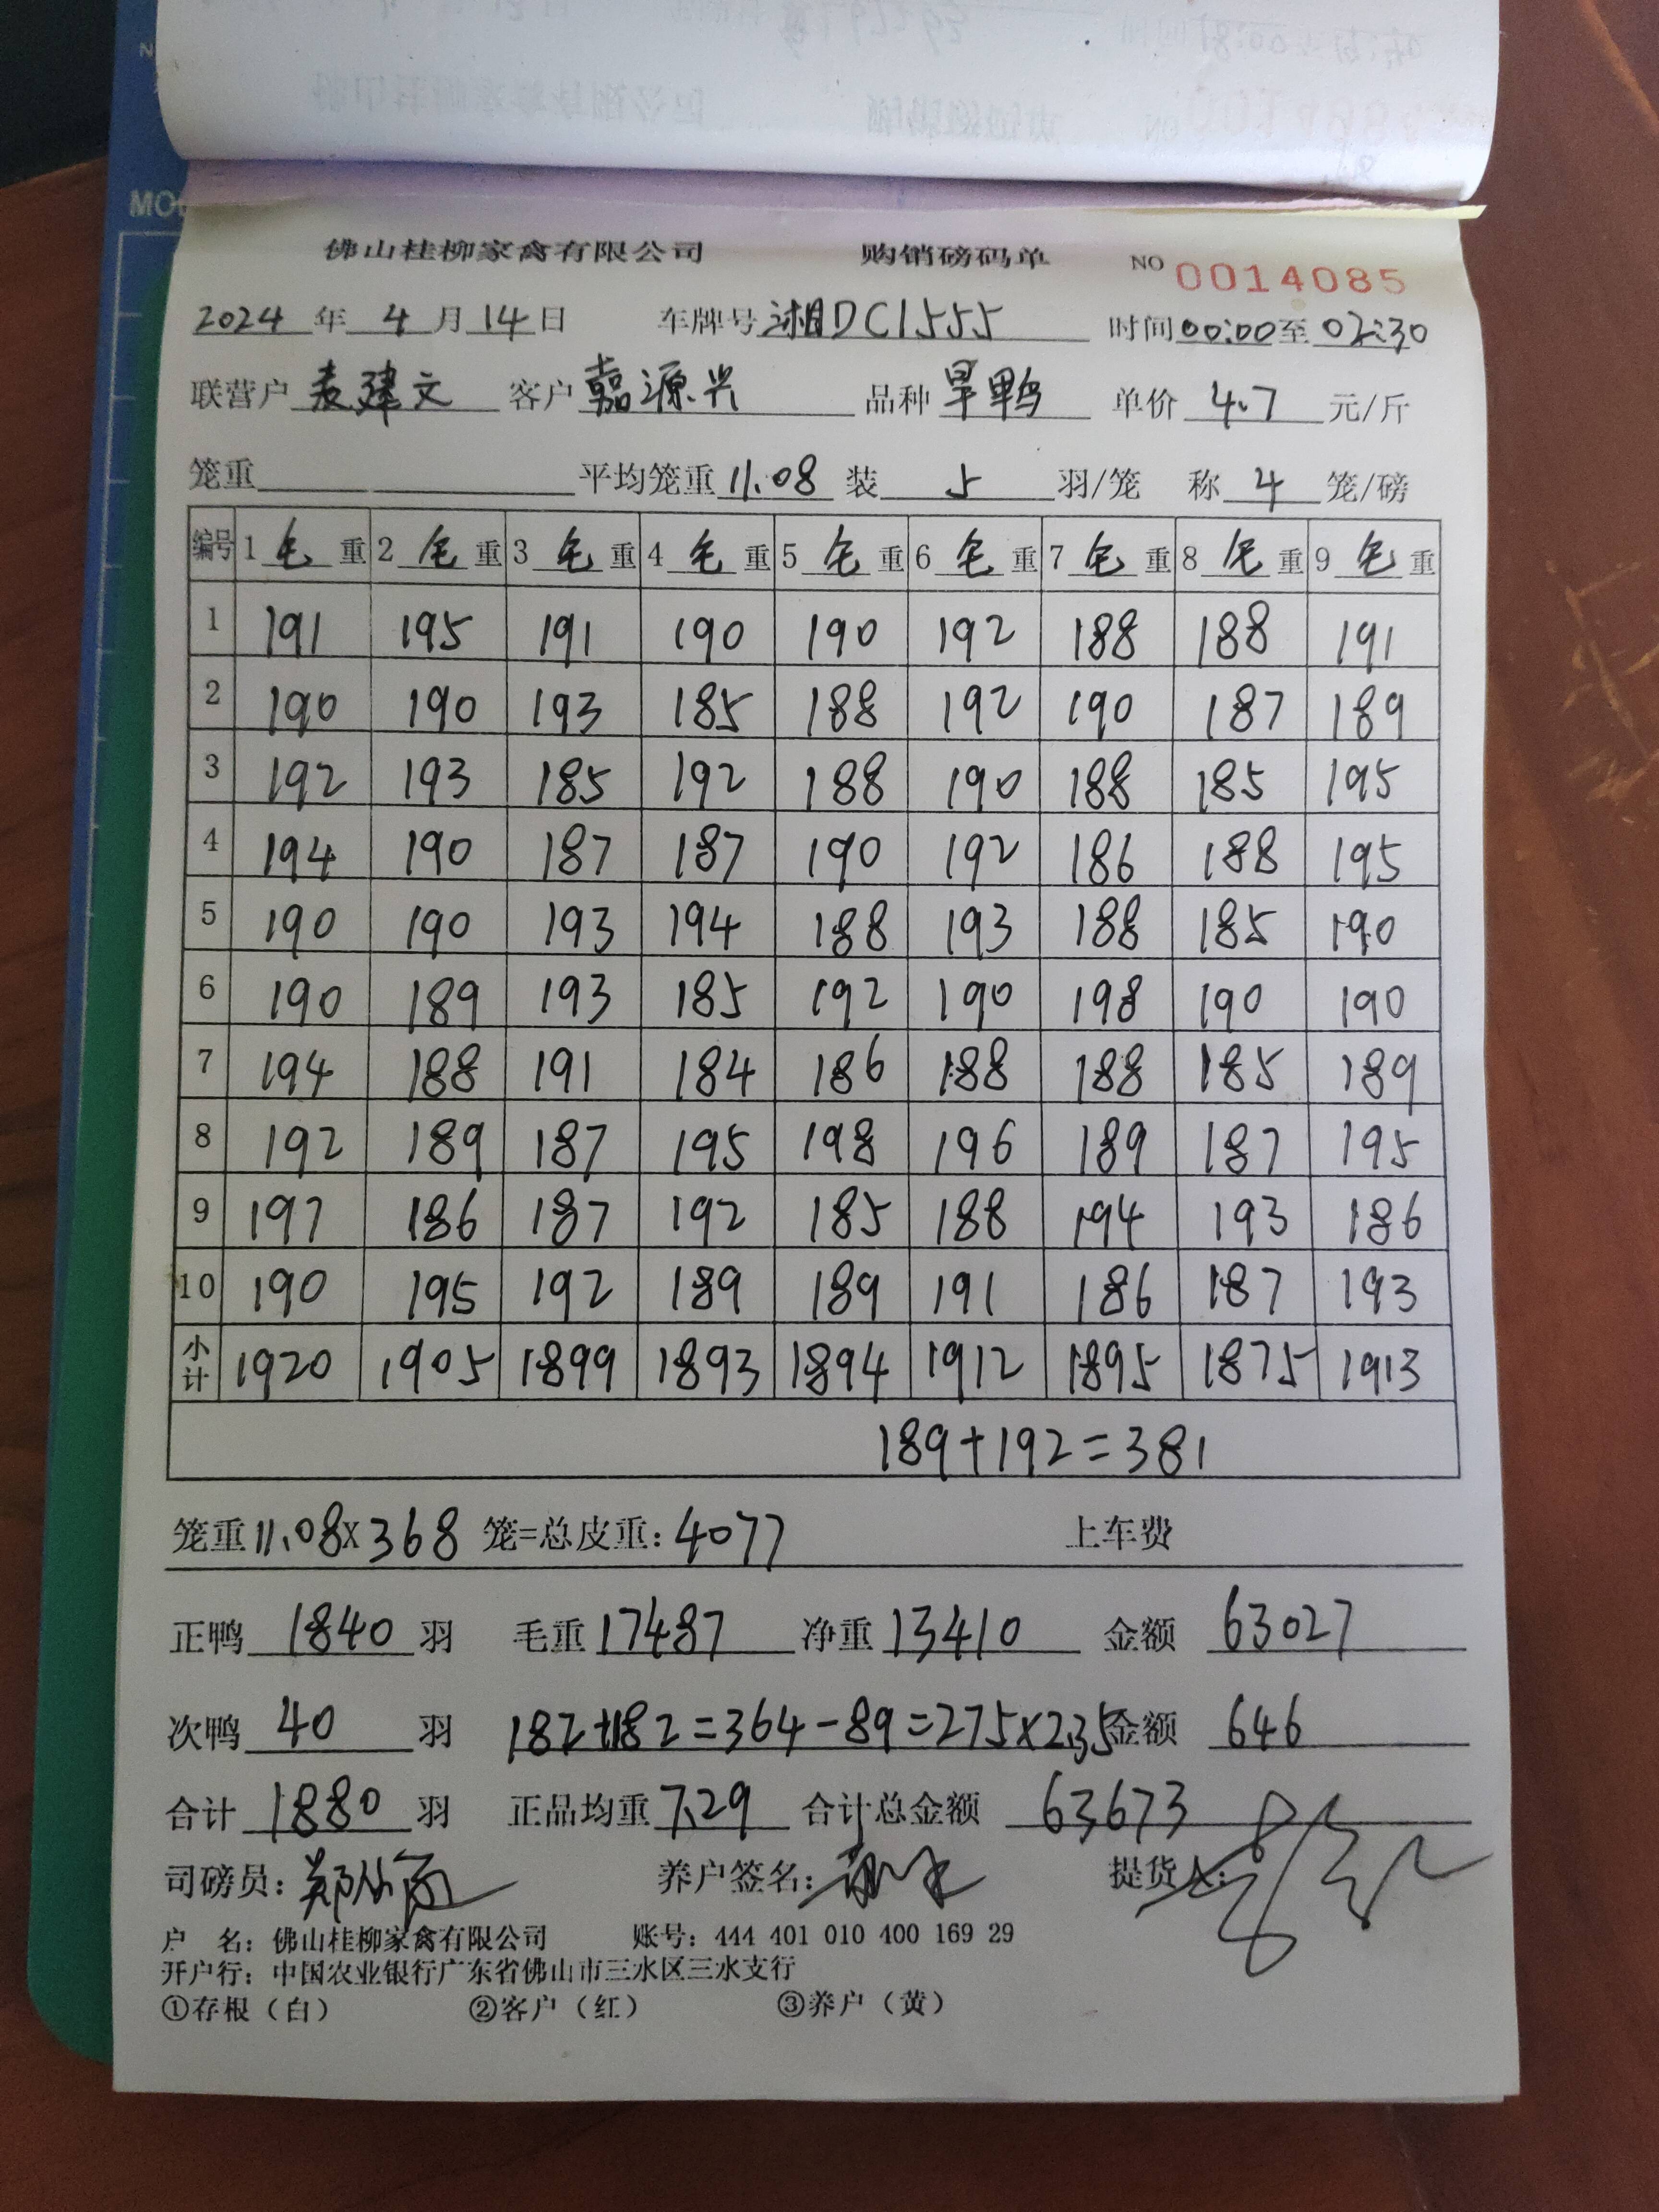 佛山桂柳家禽有限公司 购销磅码单 NO 0014085
2024 年 4 月 14 日 车牌号 湘DC1555 时间 00:00 至 02:30
联营户 麦建文 客户 嘉源兴 品种 旱鸭 单价 4.7 元/斤
笼重 平均笼重 11.08 装 5 羽/笼 称 4 笼/磅
编号 1 毛 重 2 毛 重 3 毛 重 4 毛 重 5 毛 重 6 毛 重 7 毛 重 8 毛 重 9 毛 重
1 191 195 191 190 190 192 188 188 191
2 190 190 193 185 188 192 190 187 189
3 192 193 185 192 188 190 188 185 195
4 194 190 187 187 190 192 186 188 195
5 190 190 193 194 188 193 188 185 190
6 190 189 193 185 192 190 198 190 190
7 194 188 191 184 186 188 188 185 189
8 192 189 187 195 198 196 189 187 195
9 197 186 187 192 185 188 194 193 186
10 190 195 192 189 189 191 186 187 193
小计 1920 1905 1899 1893 1894 1912 1895 1875 1913
189+192=381
笼重 11.08 X 368 笼=总皮重: 4077 上车费
正鸭 1840 羽 毛重 17487 净重 13410 金额 63027
次鸭 40 羽 182+182=364-89=275×2.35 金额 646
合计 1880 羽 正品均重 7.29 合计总金额 63673
司磅员: 养户签名: 提货人:
户 名: 佛山桂柳家禽有限公司 账号: 444 401 010 400 169 29
开户行: 中国农业银行广东省佛山市三水区三水支行
①存根（白） ②客户（红） ③养户（黄）